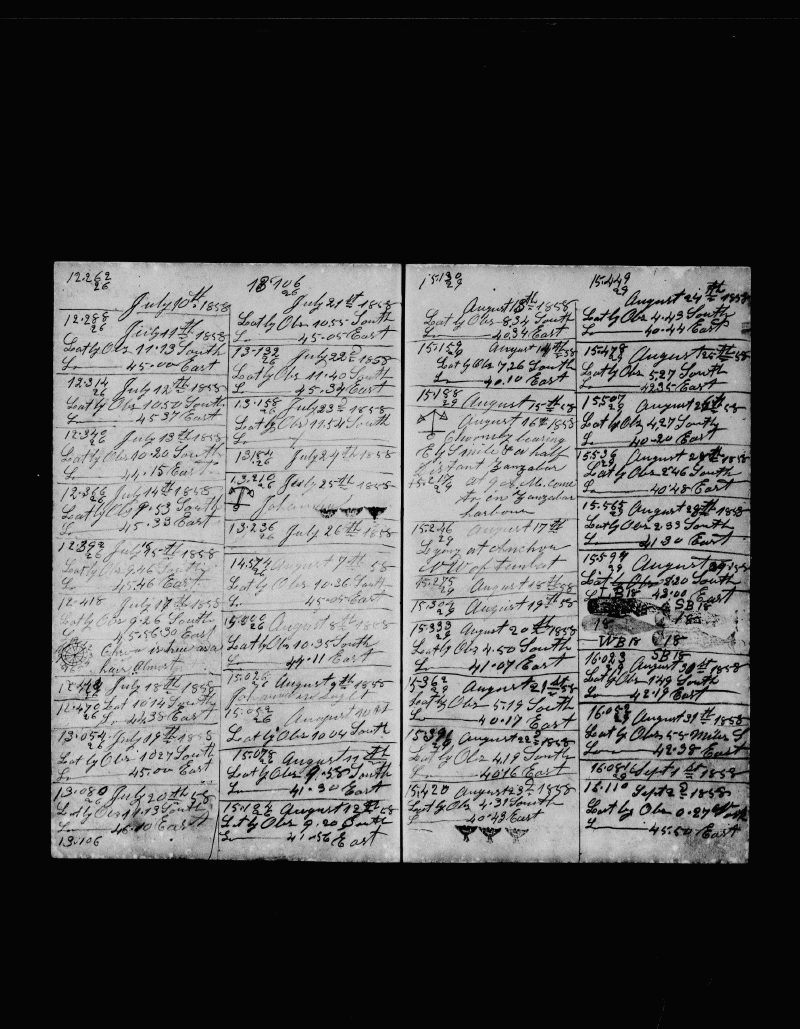 12.262
26
July 10th 1858
12.288
26
July 11th 1858
Lat by Obs 11.13 South
L 45.00 East
12.314
26
July 12th 1858
Lat by Obs 10.50 South
L 45.37 East
12.340
26
July 13th 1858
Lat by Obs 10.20 South
L 44.15 East
12.366
26
July 14th 1858
Lat by Obs 9.53 South
L 45.33 East
12.392
26
July 15th 1858
Lat by Obs 9.46 South
L 45.46 East
12.418
July 17th 1858
Lat by Obs 9.26 South
L 45.56.30 East
hair Almost
12.444
26
July 18th 1858
12.470
26
Lat 10.14 South
L 44.38 East
13.054
26
July 19th 1858
Lat by Obs 10.27 South
L 45.00 East
13.080
26
July 20th 58
Lat by Obs 11.13 South
L 46.10 East
13.106
13.106
26
July 21st 1858
Lat by Obs 10.55 South
L 45.05 East
13.132
26
July 22d 1858
Lat by Obs 11.40 South
L 45.34 East
13.158
26
July 23d 1858
Lat by Obs 11.54 South
L
13.184
26
July 24th 1858
13.210
July 25th 1858
Johanna
13.236
26
July 26th 1858
14.574
26
August 7th 58
Lat by Obs 10.36 South
L 45.05 East
15.000
26
August 8th 1858
Lat by Obs 10.35 South
L 44.11 East
15.026
26
August 9th 1858
15.052
26
August 10th
Lat by Obs 10.04 South
15.078
26
August 11th
Lat by Obs 9.58 South
L 41.30 East
15.104
26
August 12th 58
Lat by Obs 9.20 South
L 41.56 East
15.130
29
August 13th 1858
Lat by Obs 8.34 South
L 40.34 East
15.159
29
August 14th 58
Lat by Obs 7.26 South
L 40.10 East
15.188
29
August 15th 58
August 16th 1858
Choomby bearing
E by S mile & a half
distant Zanzabar
15.217
29
at 9 oc Ab. Came
to in Zanzabar
harbour
15.246
29
August 17th
Lying at Anchor
NW of Tumbat
15.275
29
August 18th 58
15.304
29
August 19th 58
15.333
29
August 20th 1858
Lat by Obs 4.50 South
L 41.07 East
15.362
29
August 21st 58
Lat by Obs 5.19 South
L 40.17 East
15.391
29
August 22d 1858
Lat by Obs 4.19 South
L 40.16 East
15.420
29
August 23d 1858
Lat by Obs 4.31 South
L 40.43 East
15.449
29
August 24th 1858
Lat by Obs 4.43 South
L 40.44 East
15.478
29
August 25th 58
Lat by Obs 5.27 South
L 42.35 East
15.507
29
August 26th 58
Lat by Obs 4.27 South
L 40.20 East
15.536
29
August 28th 1858
Lat by Obs 2.46 South
L 40.48 East
15.565
29
August 28th 1858
Lat by Obs 2.33 South
L 41.30 East
15.594
29
August 58
Lat by Obs 2.20 South
L 43.00 East
LB 18
SB 18
18
18
WB 18
SB 18
18
16.023
29
August 30th 1858
Lat by Obs 1.49 South
L 42.19 East
16.052
29
August 31st 1858
Lat by Obs 58 Miles S
L 42.38 East
16.081
29
Sept 1st 1858
16.110
Sept 2d 1858
Lat by Obs 0.27 North
L 45.50 East